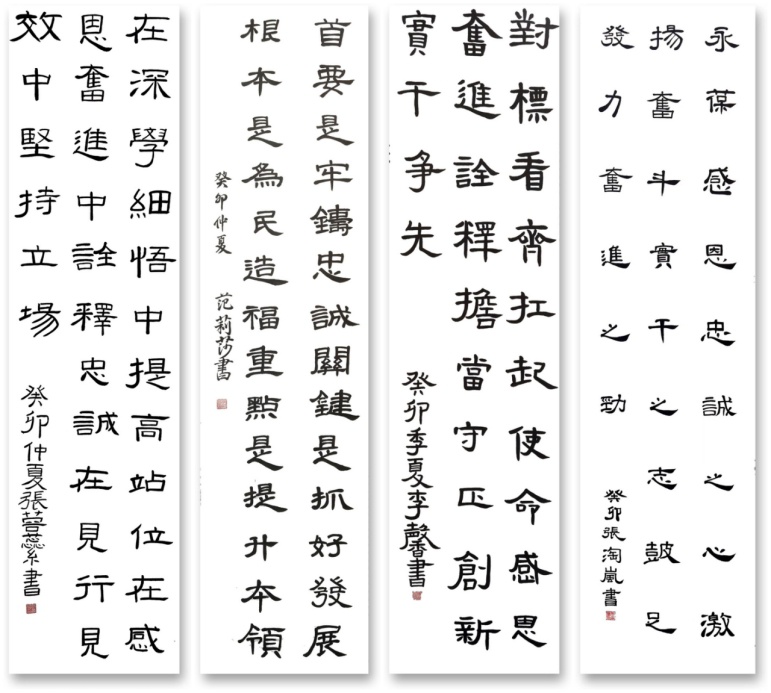 永葆感恩忠誠之心激
揚奮斗實干之志鼓足
發力奮進之勁
癸卯張淘嵐書
對標看齊扛起使命感恩
奮進詮釋擔當守正創新
實干争先
癸卯季夏李馨書
首要是牢鑄忠誠關鍵是抓好發展
根本是為民造福重點是提升本領
癸卯仲夏 范莉莎書
在深學細悟中提高站位在感
恩奮進中詮釋忠誠在見行見
效中堅持立場
癸卯仲夏張書